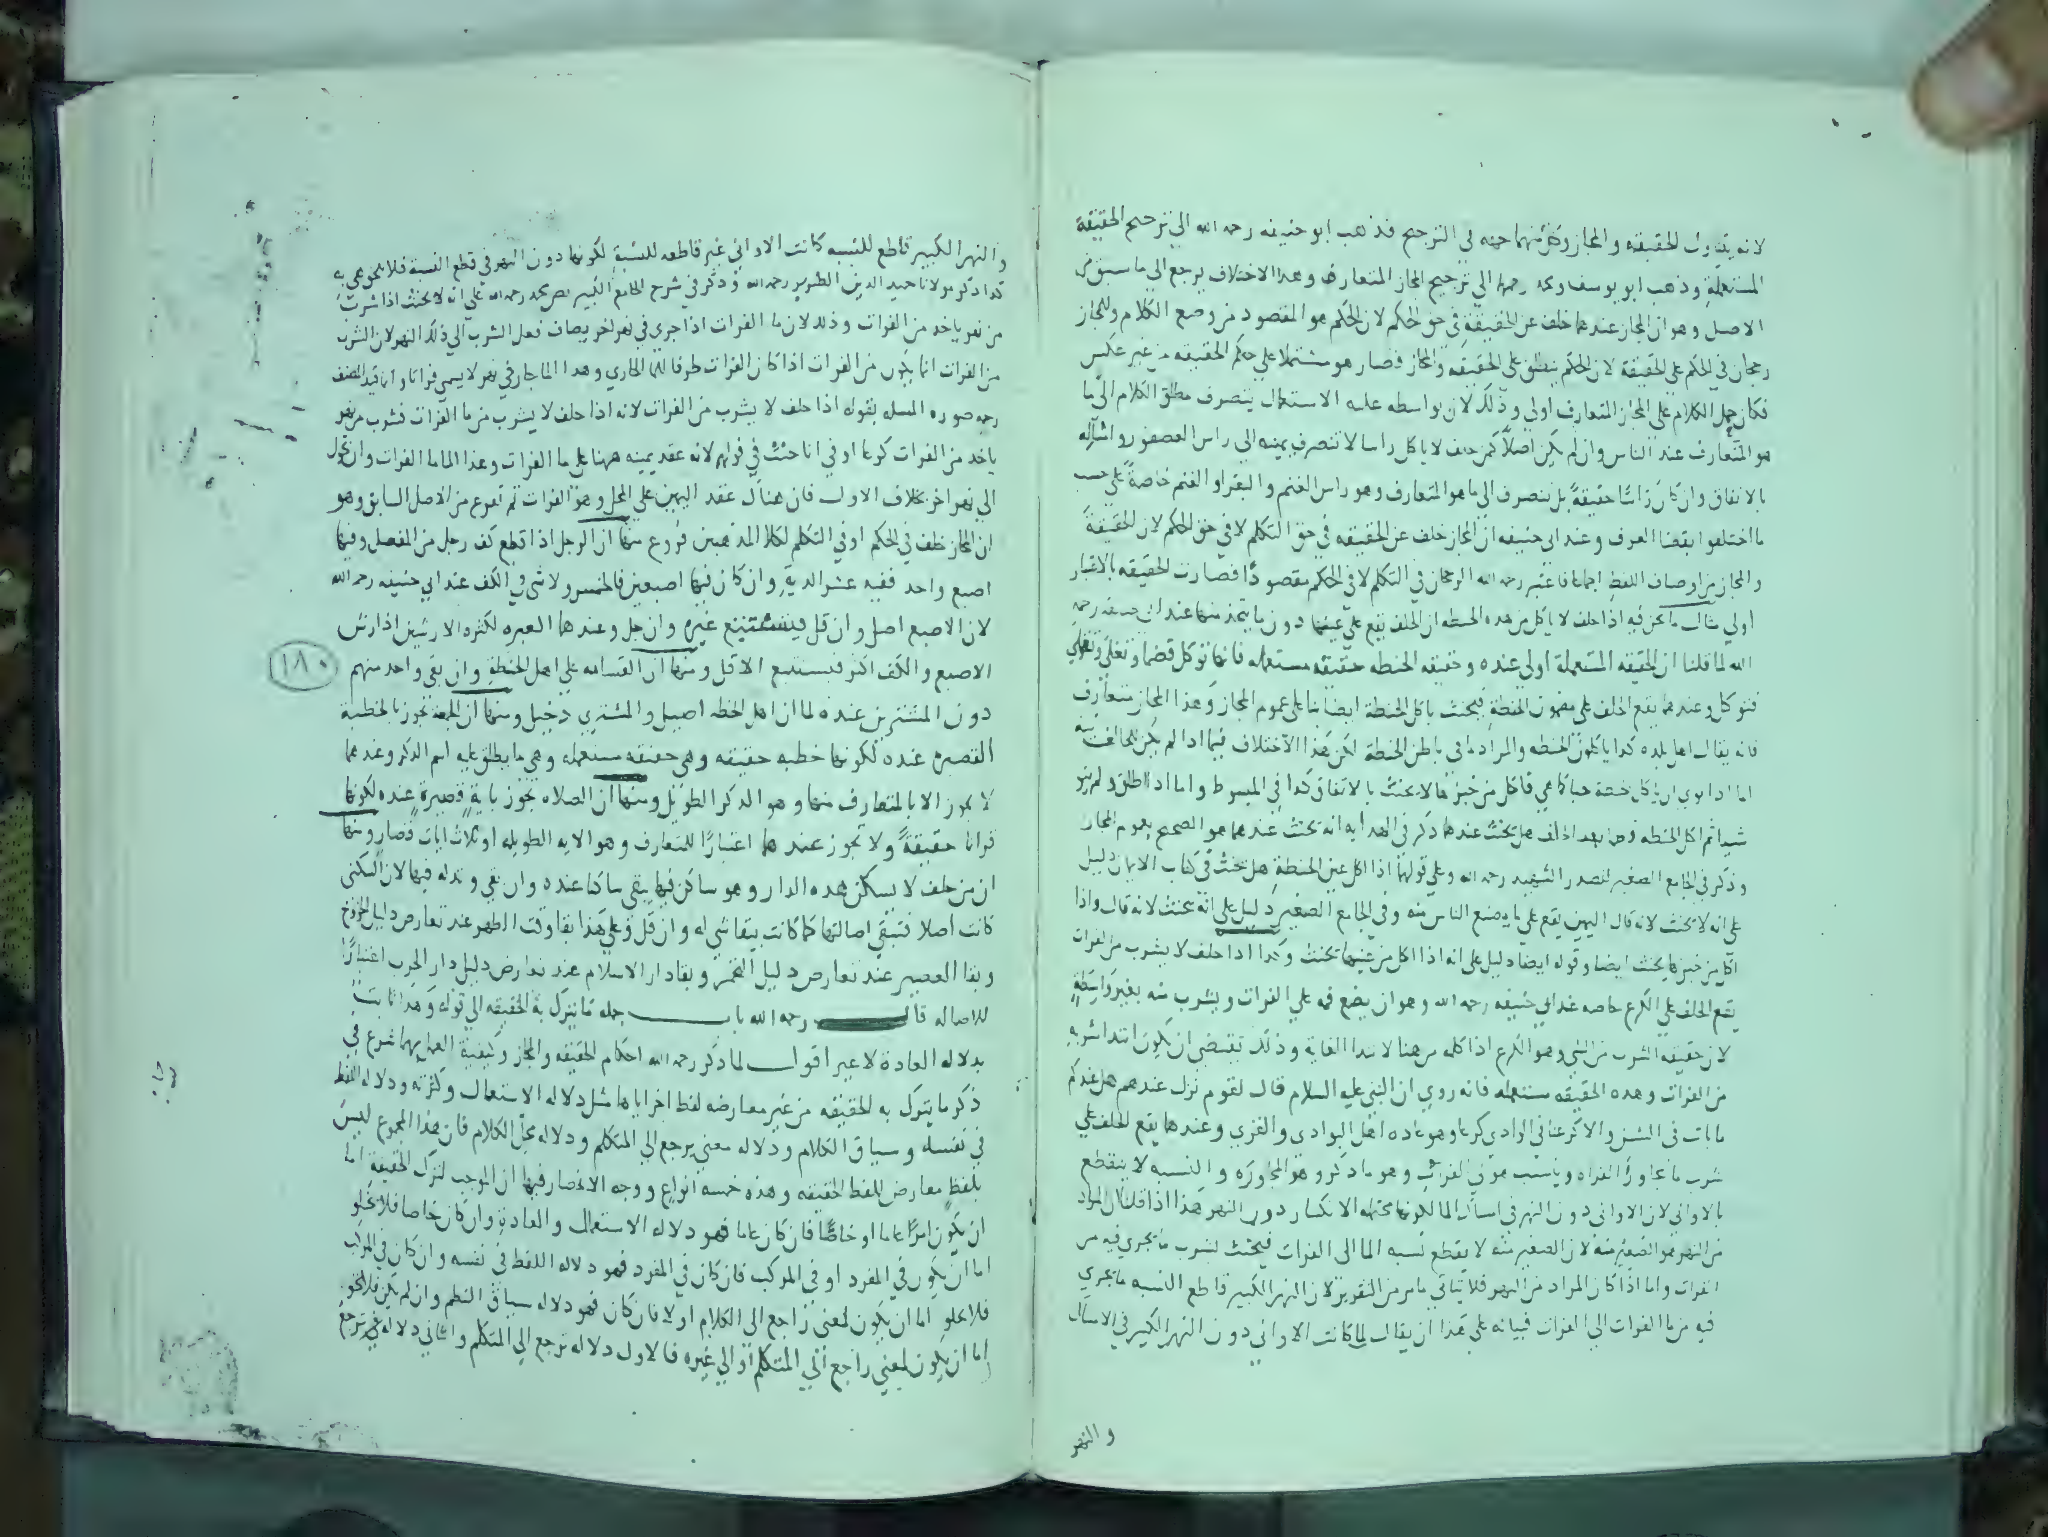 لانه يتفاوت الحقيقه والمجاز وكل منهما حجه في الترجيح فذهب ابو حنيفه رحمه الله الي ترجيح الحقيقة
المستعملة وذهب ابو يوسف ومحمد رحمهما الي ترجيح المجاز المتعارف وهذا الاختلاف يرجع الي ما سبق من
الاصل وهو ان المجاز عندهما خلف عن الحقيقة في حق الحكم لان الحكم هو المقصود من وضع الكلام وللمجاز
رجحان في الحكم علي الحقيقة لان الحكم ينطلق علي الحقيقه والمجاز فصار هو مشتملا علي حكم الحقيقه من غير عكس
فكان حمل الكلام علي المجاز المتعارف اولي وذلك لان بواسطه غلبه الاستعمال ينصرف مطلق الكلام الي ما
هو المتعارف عند الناس وان لم يكن اصلا كمن حلف لا ياكل راسا لا تنصرف يمينه الي راس العصفور وامثاله
بالاتفاق وان كان راسًا حقيقةً بل ينصرف الي ما هو المتعارف وهو راس الغنم والبقر او الغنم خاصةً علي حسب
ما اختلفوا بقضا العرف وعند ابي حنيفه ان المجاز خلف عن الحقيقه في حق التكلم لا في حق الحكم لان الحقيقة
والمجاز من اوصاف اللفظ اجماعا فاعتبر رحمه الله الرجحان في التكلم لا في الحكم مقصودًا فصارت الحقيقه بالاعتبار
اولي مثال ما نحن فيه اذا حلف لا ياكل من هذه الحنطه ان الحلف يقع علي عينها دون ما يتخذ منها عند ابي حنيفه رحمه
الله لما قلنا ان الحقيقه المستعملة اولي عنده وحقيقه الحنطه حقيقه مستعمله فانها توكل قضما وتغلى وتقلي
فتوكل وعندهما يقع الحلف علي مضمون الحنطة فيحنث باكل الحنطة ايضا بنا علي عموم المجاز وهذا المجاز متعارف
فانه يقال اهل بلده كذا ياكلون الحنطه والمراد ما في باطن الحنطة لكن هذا الاختلاف فيما اذا لم يكن للحالف نيه
اما اذا نوي ان لا ياكل حنطة حبا كما هي فاكل من خبزها لا يحنث بالاتفاق كذا في المبسوط واما اذا اطلق ولم ينو
شيا ثم اكل الحنطه هل يحنث عندهما ذكر في الهدايه انه يحنث عندهما هو الصحيح بعموم المجاز
وذكر في الجامع الصغير للصدر الشهيد رحمه الله وعلي قولهما اذا اكل عين الحنطة هل يحنث في كتاب الايمان دليل
علي انه لا يحنث لانه قال اليمين يقع علي ما يصنع الناس منه وفي الجامع الصغير دليل علي انه يحنث لانه قال واذا
اكل من خبزها يحنث ايضا وقوله ايضا دليل علي انه اذا اكل من عينها يحنث وكذا اذا حلف لا يشرب من الفرات
يقع الحلف علي الكرع خاصه عند ابي حنيفه رحمه الله وهو ان يضع فمه علي الفرات ويشرب منه بغير واسطة
لان حقيقه الشرب من الشي وهو الكرع اذ كلمه من هنا لابتدا الغاية وذلك يقتضي ان يكون ابتدا شربه
من الفرات وهذه الحقيقه مستعمله فانه روي ان النبي عليه السلام قال لقوم نزل عندهم هل عندكم
ما بات في الشن والا كرعنا في الوادي كرعا وهو عاده اهل البوادي والقري وعندهما يقع الحلف علي
شرب ما مجاور الفراه وينسب هو الي الفرات وهو ما ذكر وهو المجاورة والنسبه لا ينقطع
بالاواني لان الاواني دون النهر في امساك الما لكونها محتمله الانكسار دون النهر هذا اذا قلنا ان المراد
من النهر هو الصغير منه لان الصغير منه لا يقطع نسبه الما الي الفرات فيحنث لشرب ما يجري فيه من
الفرات واما اذا كان المراد من النهر فلا يتاتي ما مر من التقرير لان النهر الكبير قاطع النسبه ما يجري
فيه من ما الفرات الي الفرات فبيانه علي هذا ان يقال لما كانت الاواني دون النهر الكبير في الامساك
والنهر
والنهر الكبير قاطع للنسبه كانت الاواني غير قاطعه للنسبة لكونها دون النهر في قطع النسبة فلا
كذا ذكر مولانا حميد الدين الضرير رحمه الله وذكر في شرح الجامع الكبير نص محمد رحمه الله علي انه لا يحنث اذا شرب
من نهر ياخذ من الفرات وذلك لان ما الفرات اذا جري في نهر اخر يضاف فعل الشرب الي ذلك النهر لان الشرب
من الفرات انما يكون من الفرات اذا كان الفرات ظرفا للما الجاري وهذا الما جار في نهر لا يسمي فراتا وانما قيد المصنف
رحمه صوره المسله بقوله اذا حلف لا يشرب من الفرات لانه اذا حلف لا يشرب من ما الفرات فشرب من نهر
ياخذ من الفرات كرعا او في انا حنث في قولهم لانه عقد يمينه ههنا علي ما الفرات وهذا الما ما الفرات وان تحول
الي نهر اخر بخلاف الاول فان هناك عقد اليمين علي المحل وهو الفرات ثم تفرع من الاصل السابق وهو
ان المجاز خلف في الحكم او في التكلم لكلا المذهبين فروع منها ان الرجل اذا قطع كف رجل من المفصل وفيها
اصبع واحد ففيه عشر الدية وان كان فيها اصبعين فالخمس ولا شي في الكف عند ابي حنيفه رحمه الله
لان الاصبع اصل وان قل فيستتبع غيره وان جل وعندهما العبره لكثره الارشين اذ ارش
الاصبع والكف اكثر فيستتبع الاقل ومنها ان القسامه علي اهل الخطة وان بقي واحد منهم
١٨٠
دون المشترين عنده لما ان اهل الخطه اصيل والمشتري دخيل ومنها ان الجمعة تجوز بالخطبة
القصيرة عنده لكونها خطبه حقيقه وهي حقيقه مستعمله وهي ما يطلق عليه اسم الذكر وعندهما
لا يجوز الا بالمتعارف منها وهو الذكر الطويل ومنها ان الصلاه تجوز باية قصيرة عنده لكونها
قرانا حقيقةً ولا تجوز عندهما اعتبارًا للمتعارف وهو الايه الطويله او ثلاث ايات قصار ومنها
ان من حلف لا يسكن هذه الدار وهو ساكن فيها يبقي ساكنا عنده وان بقي وتد له فيها لان السكني
كانت اصلا فتبقي اصالتها كما كانت ببقا شي له وان قل وعلي هذا بقا وقت الظهر عند تعارض دليل الخروج
وبقا العصير عند تعارض دليل التخمر وبقا دار الاسلام عند تعارض دليل دار الحرب اعتبارًا
للاصاله قال رحمه الله باب جمله ما يترك به الحقيقه الي قوله وهذا ثابت
بدلاله العادة لا غير اقول لما ذكر رحمه الله احكام الحقيقه والمجاز وكيفية العمل بهما شرع في
ذكر ما يترك به الحقيقه من غير معارضه لفظ اخر اياها مثل دلاله الاستعمال وكثرته ودلاله اللفظ
في نفسه وسياق الكلام ودلاله معني يرجع الي المتكلم ودلاله محل الكلام فان هذا المجموع ليس
بلفظ معارض للفظ الحقيقه وهذه خمسه انواع ووجه الانحصار فيها ان الموجب لترك الحقيقة اما
ان يكون امرًا عاما او خاصًا فان كان عاما فهو دلاله الاستعمال والعادة وان كان خاصا فلا يخلو
اما ان يكون في المفرد او في المركب فان كان في المفرد فهو دلاله اللفظ في نفسه وان كان في المركب
فلا يخلو اما ان يكون لمعني راجع الي الكلام اولا فان كان فهو دلاله سياق النظم وان لم يكن فلا يخلو
اما ان يكون لمعني راجع الي المتكلم او الي غيره فالاول دلاله ترجع الي المتكلم والثاني دلاله